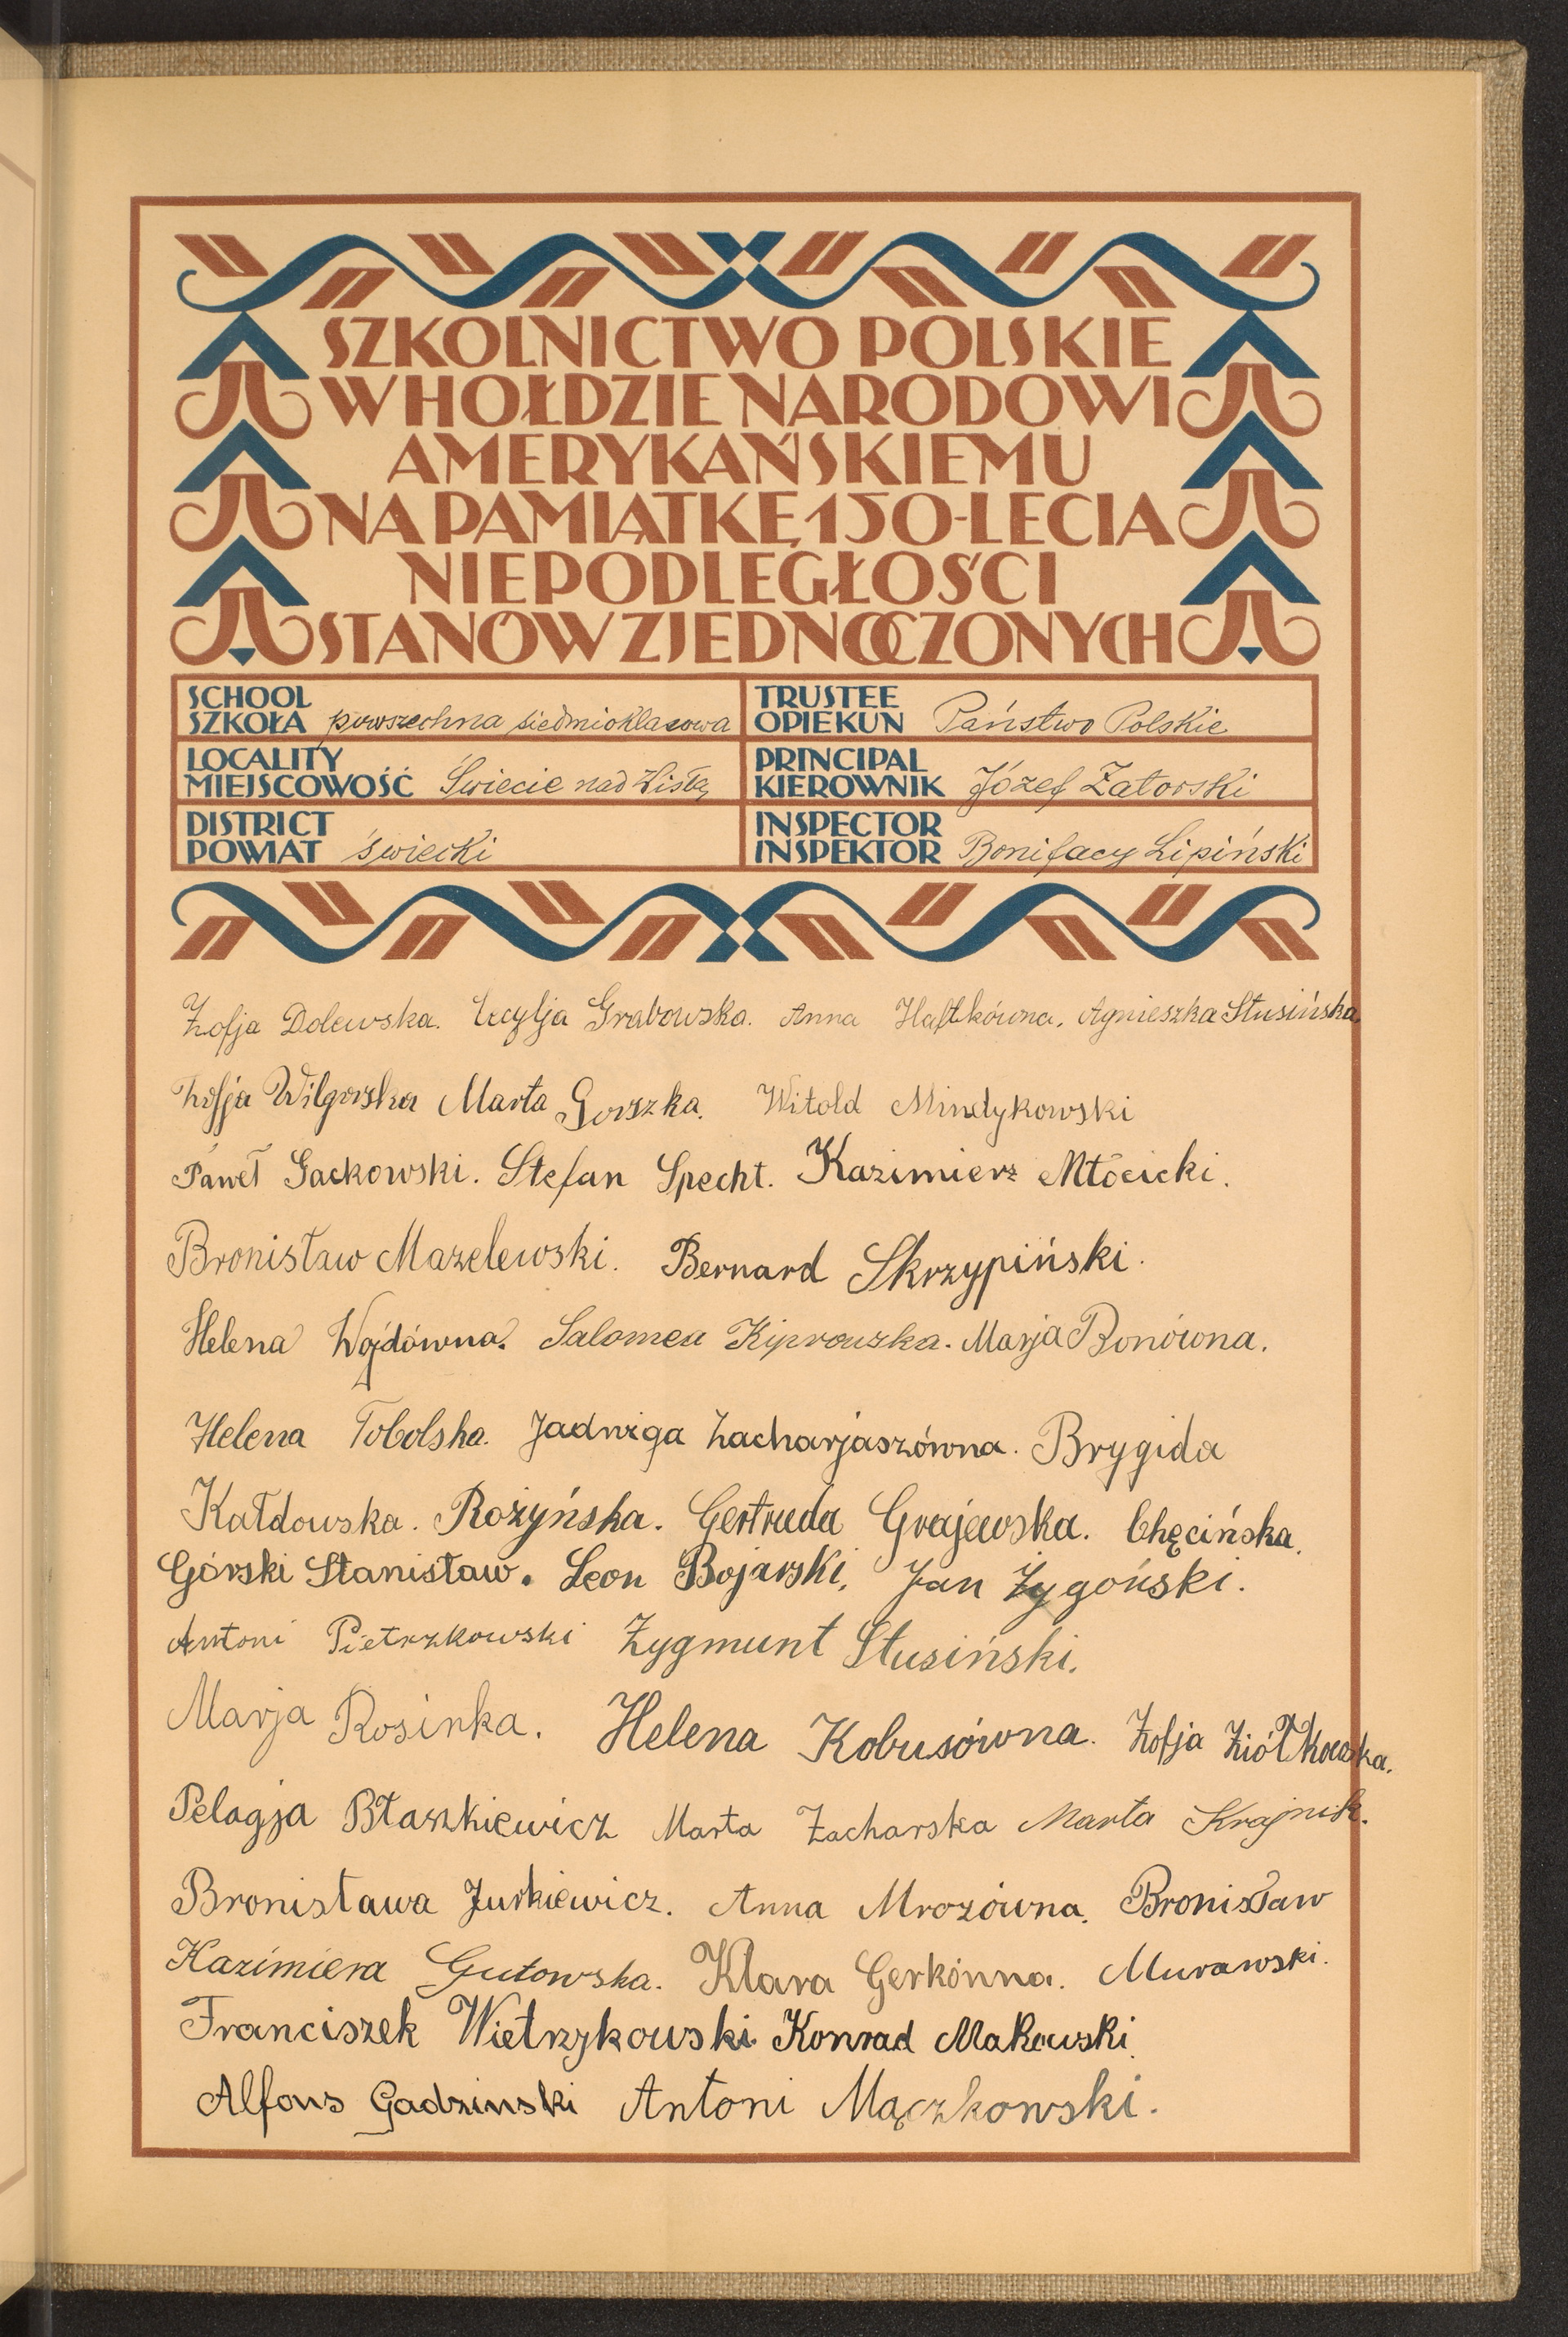 SZKOLNICTWO POLSKIE
W HOŁDZIE NARODOWI
AMERYKAŃSKIEMU
NA PAMIĄTKĘ 150-LECIA
NIEPODLEGŁOŚCI
STANÓW ZJEDNOCZONYCH
SCHOOL
SZKOŁA powszechna siedmioklasowa
TRUSTEE
OPIEKUN Państwo Polskie
LOCALITY
MIEJSCOWOŚĆ Świecie nad Wisłą
PRINCIPAL
KIEROWNIK Józef Zatorski
DISTRICT
POWIAT świecki
INSPECTOR
INSPEKTOR Bonifacy Lipiński
Zofja Dolewska. Cecylja Grabowska. Anna Haftkówna. Agnieszka Stusińska.
Zofja Wilgorska Marta Gorszka. Witold Mindykowski
Paweł Gackowski. Stefan Specht. Kazimierz Młocicki.
Bronisław Mazelewski. Bernard Skrzypiński.
Helena Wojdówna. Salomea Kiprowska. Marja Bonówna.
Helena Tobolska. Jadwiga Zacharjaszówna. Brygida
Kałdowska. Rożyńska. Gertruda Grajewska. Chęcińska.
Górski Stanisław. Leon Bojarski. Jan Żygoński.
Antoni Pietrzkowski Zygmunt Stusiński.
Marja Rosinka. Helena Kobusówna. Zofja Ziółkowska.
Pelagja Błaszkiewicz Marta Zacharska Marta Krajnik.
Bronisława Jurkiewicz. Anna Mrozówna. Bronisław
Kazimiera Gutowska. Klara Gerkówna. Murawski.
Franciszek Wietrzykowski. Konrad Makowski.
Alfons Gadzinski Antoni Mączkowski.